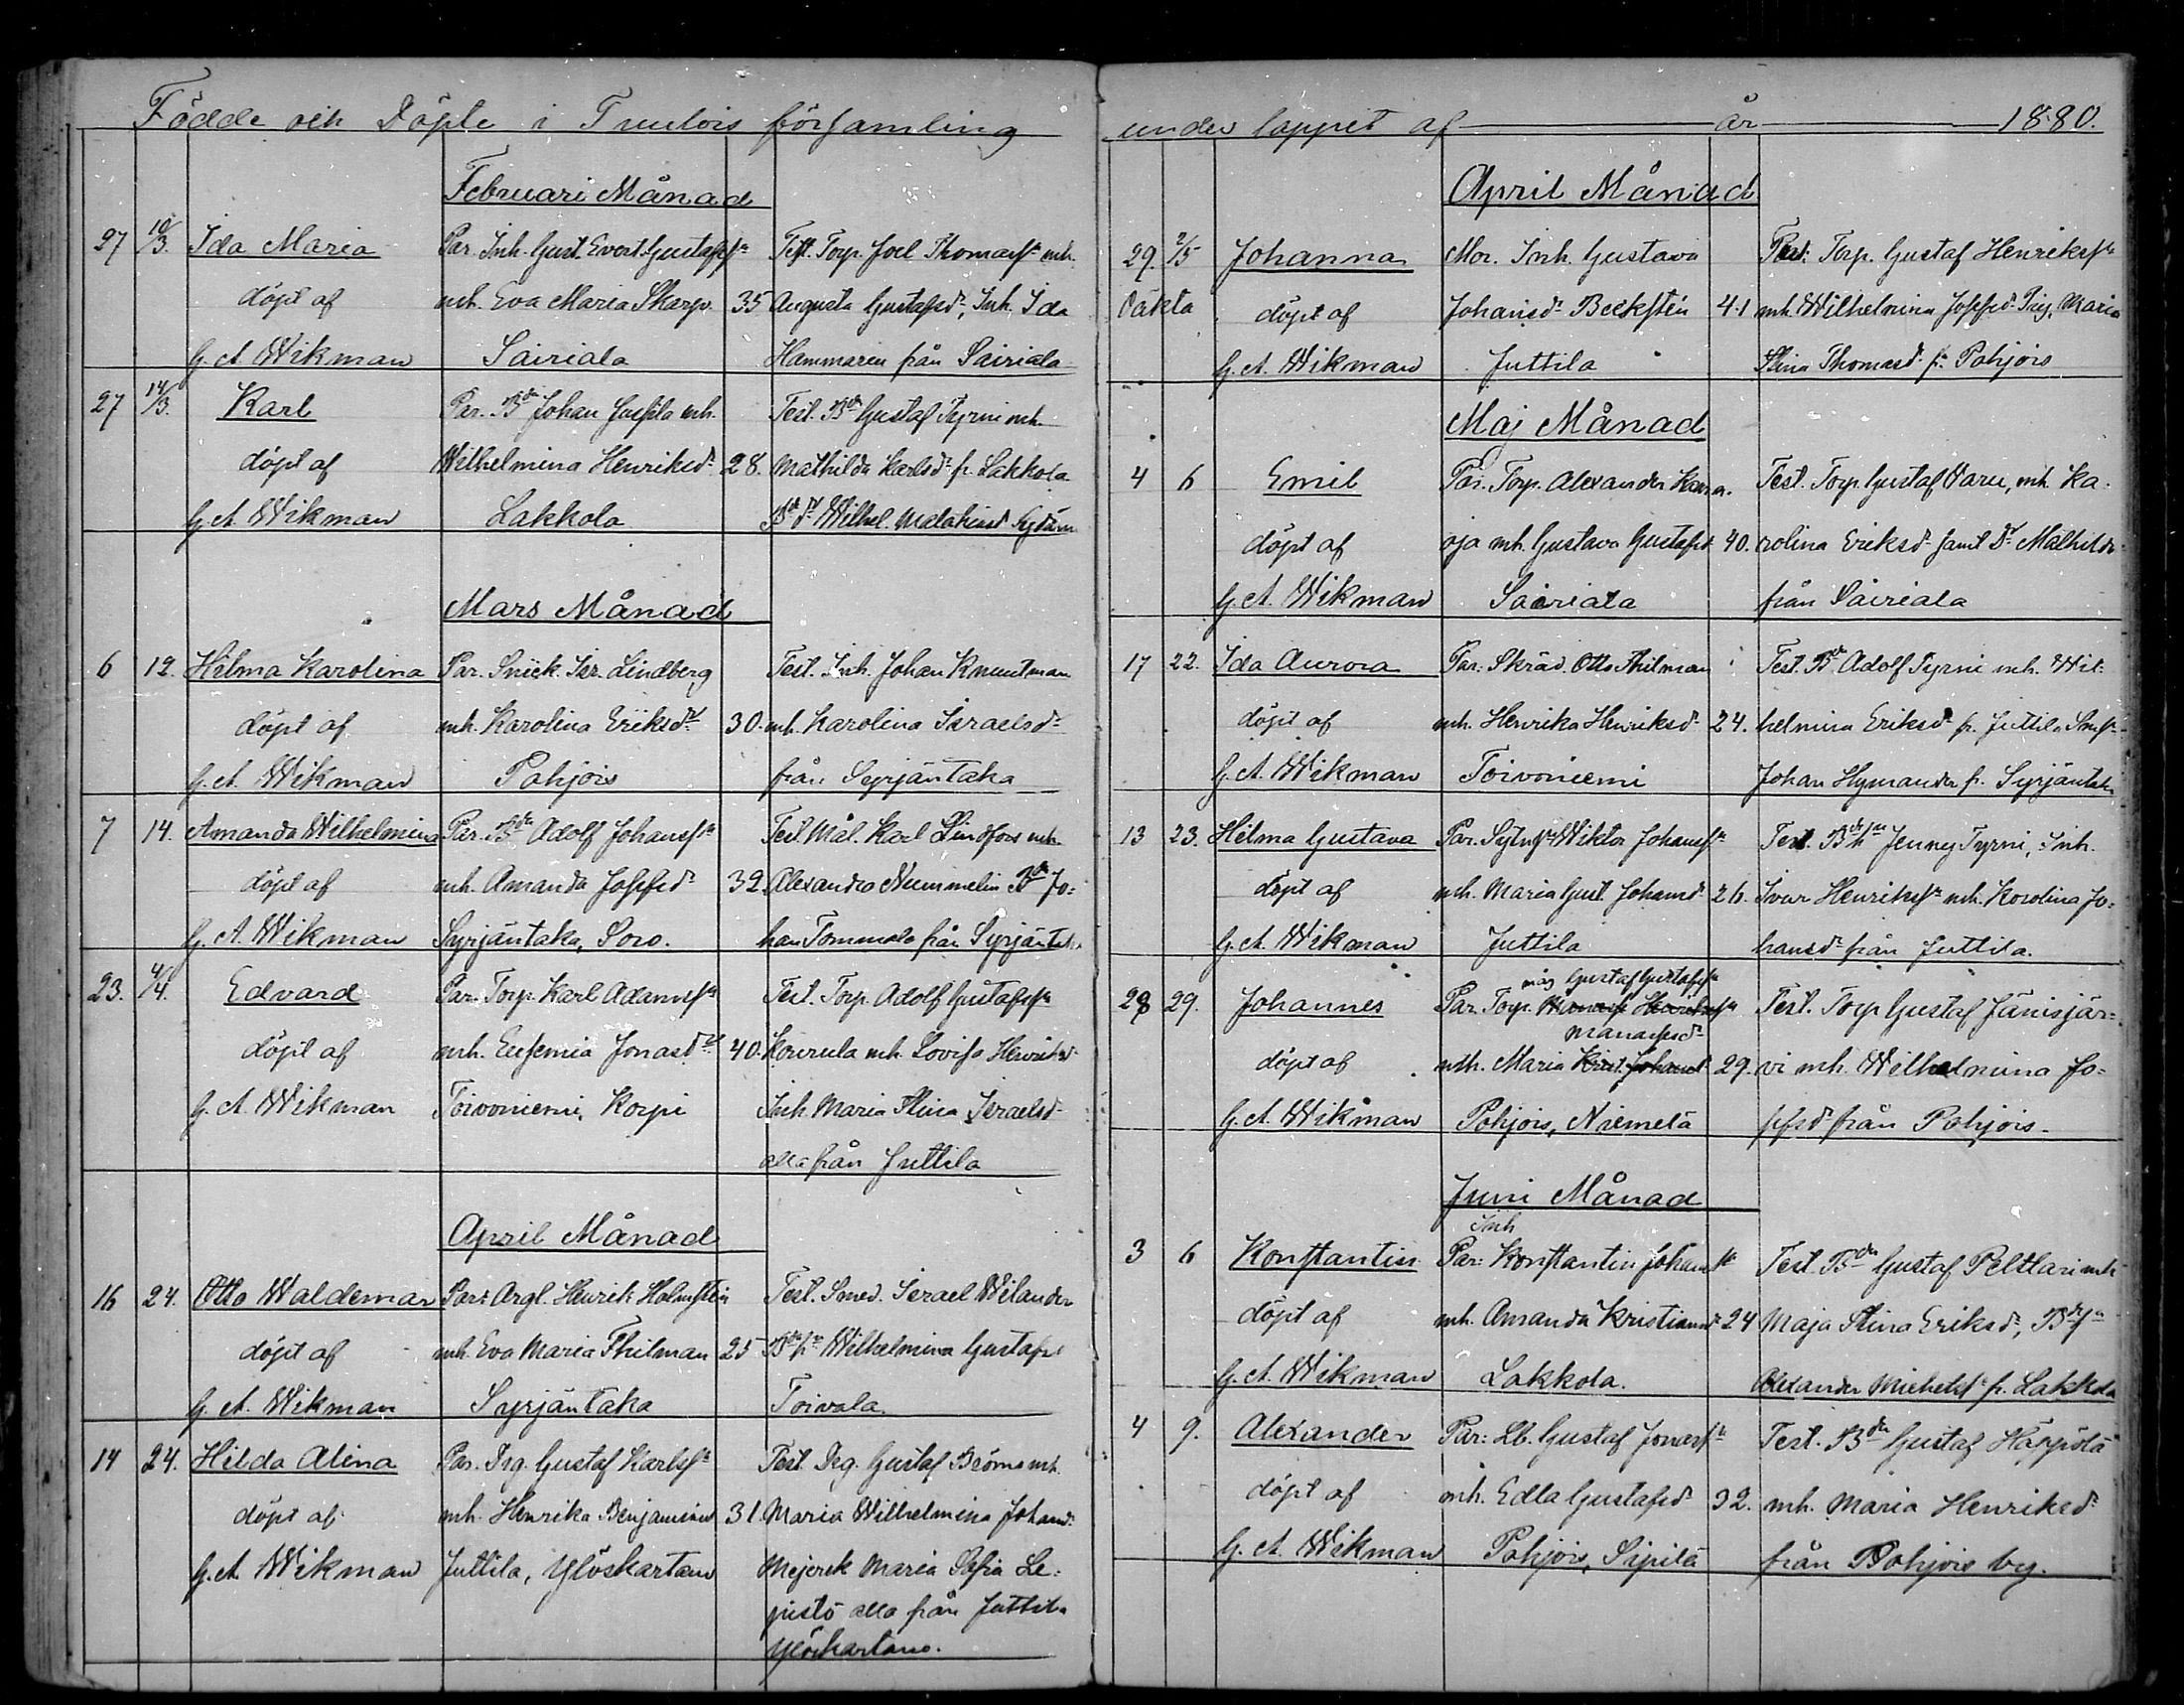 Födde och Döpte i Tuulois församling
Februari Månad
27 10/3. Ida Maria Par. Inh. Gust. Evert Gustafss:n Test. Torp. Joel Thomass:n mh.
döpt af mh. Eva Maria Skarp. 35 Augusta Gustafsd:r, Inh. Ida
G. A. Wikman Sairiala Hammaren från Sairiala
27 14/3. Karl Par. Bd:n Johan Jussila mh. Test. Bd:n Gustaf Tyrni mh.
döpt af Wilhelmina Henriksd:r 28. Mathilda Karlsd:r fr. Lakkola
G. A. Wikman Lakkola Wilhel.
Mars Månad
6 12. Hilma Karolina Par. Snick. Isr. Lindberg Test. Inh. Johan Knuutman
döpt af mh. Karolina Eriksd:r 30. mh. Karolina Israelsd:r
G. A. Wikman Pohjois från Syrjäntaka
7 14. Amanda Wilhelmina Par. Bd:n Adolf Johanss:n Test. Mål. Karl Lindfors mh.
döpt af mh. Amanda Josefsd:r 32. Alexandra Nummelin Bd:n Jo=
G. A. Wikman Syrjäntaka, Soro. han Tommola från Syrjäntaka
23. 4/4. Edvard Par. Torp. Karl Adamss:n Test. Torp. Adolf Gustafss:n
döpt af mh. Eufemia Jonasd:r 40. Kourula mh. Lovisa Henriksd:r
G. A. Wikman Toivoniemi, Korpi Inh. Maria Stina Israelsd:r
alla från Juttila
April Månad
16 24. Otto Waldemar Par: Argl. Henrik Holmstén Test. Smed. Israel Wilander
döpt af mh. Eva Maria Thilman 25 Wilhelmina Gustafsd
G. A. Wikman Syrjäntaka Toivala.
14 24. Hilda Alina Par. Drg. Gustaf Karlss:n Test. Drg. Gustaf Bröms mh.
döpt af mh. Henrika Benjaminsd 31. Maria Wilhelmina Johansd:
G. A. Wikman Juttila, Ylöskartano Mejersk Maria Sofia Le=
pistö alla från Juttila
Ylöskartano.
under loppet af år 1880.
April Månad
29. 2/5 Johanna Mor. Inh. Gustava Test: Torp. Gustaf Henrikss:n
Oäkta döpt af Johansd:r Beckstén 41 mh. Wilhelmina Josefsd: Pig. Maria
G. A. Wikman Juttila Stina Thomasd: fr. Pohjois
Maj Månad
4 6 Emil Par. Torp. Alexander Kan Test. Torp. Gustaf Varu, mh. Ka.
döpt af oja mh. Gustava Gustafsd 40. rolina Eriksd:r samt D:r Mathilda
G. A. Wikman Sairiala från Sairiala
17 22. Ida Aurora Par: Skräd. Otto Thilman Test. Bd: Adolf Tyrni mh. Wil:
döpt af mh. Henrika Henriksd:r 24. helmina Eriksd: fr. Juttila
G. A. Wikman Toivoniemi Johan Hymander fr. Syrjäntaka
13 23. Hilma Gustava Par. Wiktor Johanss:n Test. Jenny Tyrni, Inh.
döpt af mh. Maria Gust. Johansd:r 26. Ivar Henrikss:n mh. Karolina Jo=
G. A. Wikman Juttila hansd:r från Juttila.
måg Gustaf Gustafss:n
28 29. Johannes Par. Torp. Manass Henrikss:n Test. Torp Gustaf Jänisjär=
Manassesd:r
döpt af mh. Maria Krist. Johansd 29. vi mh. Wilhelmina Jo=
G. A. Wikman Pohjois, Niemelä sefsd:r från Pohjois.
Juni Månad
Inh
3 6 Konstantin Par: Konstantin Johanss:n Test. Bd:n Gustaf Peltari mh
döpt af mh. Amanda Kristiansd:r 24 Maja Stina Eriksd:r, Bds:n
G. A. Wikman Lakkola. Alexander Michelss:n fr. Lakkola
4 9. Alexander Par: Lb. Gustaf Jonass:n Test. Bd:n Gustaf Härpölä
döpt af mh. Edla Gustafsd:r 32. mh. Maria Henriksd:r
G. A. Wikman Pohjois, Sipilä från Pohjois by.